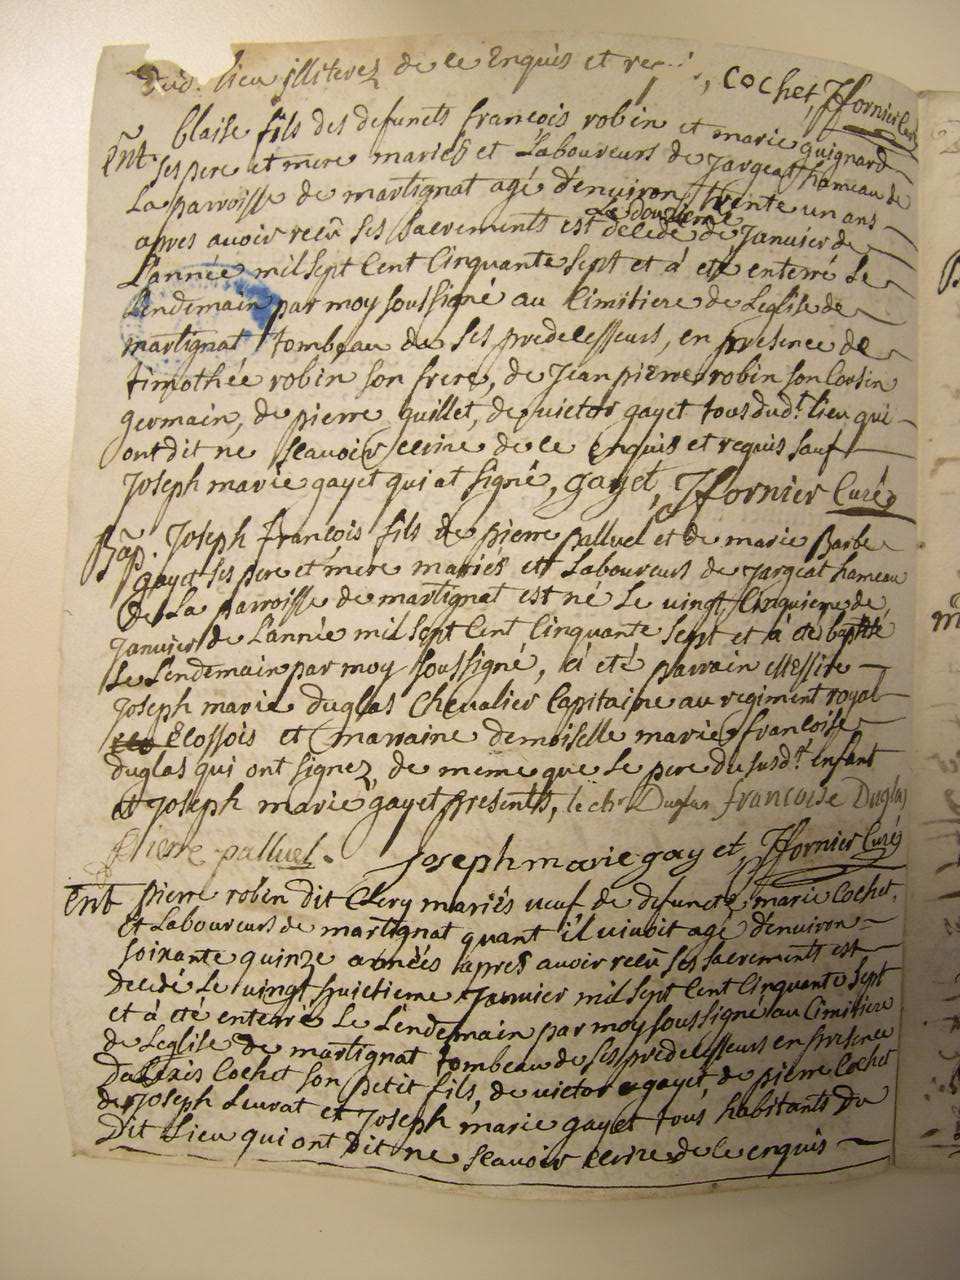 dud. lieu illiterez de ce Enquis et , Cochet, JFornier Curé
Ent. blaise fils des defuncts francois robin et marie guignard
ses pere et mere mariés et Laboureurs de Jargeat hameau de
La parroisse de martignat agé d'environ trente un ans
apres avoir recû ses sacrements est decedé le douzieme de Janvier de
L'année mil sept Cent Cinquante sept et à eté enterré Le
Lendemain par moy soussigné au Cimitiere de Leglise de
martignat tombeau de ses predecesseurs, en presence de
timothée robin son frere, de Jean pierre robin son Cousin
germain, de pierre guillet, de victor gayet tous dud.t lieu qui
ont dit ne scavoir ecrire de ce Enquis et requis sauf
Joseph marie gayet qui at signé, gayet, JFornier Curé
Bap. Joseph francois fils de pierre palluel et de marie Barbe
gayet ses pere et mere mariés et Laboureurs de Jargeat hameau
de La parroisse de martignat est né Le vingt Cinquieme de
Janvier de L'année mil sept Cent Cinquante sept et à eté baptisé
Le Lendemain par moy soussigné, à eté parrain Messire
Joseph marie duglas Chevalier Capitaine au regiment royal
Ecossois et marraine demoiselle marie francoise
duglas qui ont signez, de meme que Le pere du susd.t enfant
et Joseph marie gayet presents, le ch.r Duglas francoise Duglas
Pierre palluel. Joseph marie gayet, JFornier Curé
Ent pierre robin dit Clery mariés veuf de defuncte marie Cochet,
et Laboureurs de martignat quant il vivoit agé d'environ
soixante quinze années apres avoir recû ses sacrements est
decedé Le vingt huictieme Janvier mil sept Cent Cinquante sept
et à été enterré Le Lendemain par moy soussigné au Cimitiere
de Leglise de martignat tombeau de ses predecesseurs en presence
D'alexis Cochet son petit fils, de victor gayet, de pierre Cochet
de Joseph Leurat et Joseph marie gayet tous habitants du
Dit Lieu qui ont Dit ne scavoir ecrire de ce enquis